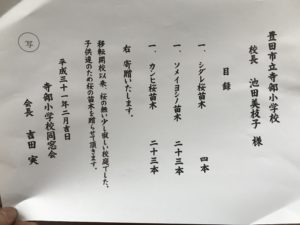 豊田市立寺部小学校
校長 池田美枝子 様
目録
一、シダレ桜苗木 四本
一、ソメイヨシノ苗木 二十三本
一、ウンヒ桜苗木 二十三本
右 寄贈いたします。
移転開校以来、桜の無い少し寂しい校庭でした。
子供達のため桜の苗木を贈らせて頂きます。
平成三十一年二月吉日
寺部小学校同窓会
会長 吉田 実
写